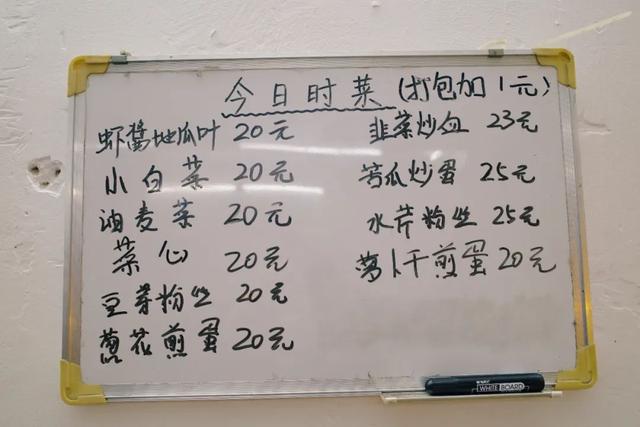 今日时菜(打包加1元)
虾酱地瓜叶 20元
小白菜 20元
油麦菜 20元
菜心 20元
豆芽粉丝 20元
葱花煎蛋 20元
韭菜炒血 23元
苦瓜炒蛋 25元
水芹粉丝 25元
萝卜干煎蛋 20元
WHITE BOARD